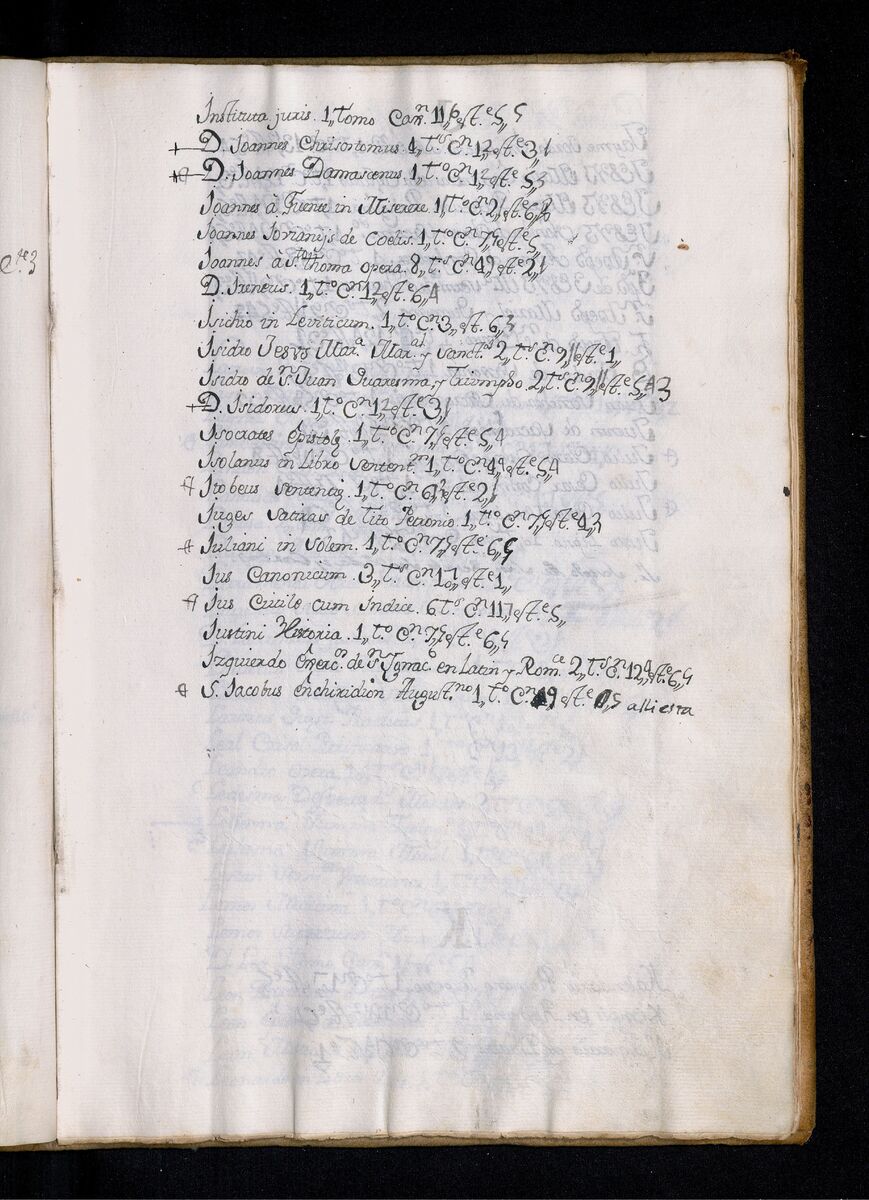 Instituta juris. 1,, Tomo Can.n 11,, est.e 5,, 5
D. Joannes Chrisostomus. 4,, t.s C.n 12,, est.e 3,, 1
D. Joannes Damascenus. 1,, t.o C.n 12,, est.e 5,, 3
Joannes à Fuente in Miserere. 1,, t.o C.n 2,, est.e 6,,
Joannes Jovianijs de Coelis. 1,, t.o C.n 7,, est.e 5,,
Joannes à S.to thoma opera. 8,, t.s C.n 4,, est.e 2,, 1
D. Irenèus. 1,, t.o C.n 12,, est.e 6,, 4
Isichio in Leviticum. 1,, t.o C.n 3,, est. 6,, 3
Isidro Jesvs Mar.a Mar.al y Sanct.s 2,, t.s C.n 9,, est.e 1,,
Isidro de S.n Juan Quaresma, y Triumpho. 2,, t.s C.n 9,, est.e 5,, 4 3
D. Isidorus. 1,, t.o C.n 12,, est.e 3,, 1
Isocrates Epistolę. 1,, t.o C.n 7,, est.e 5,, 4
Isolanus in Libro Sentent.m 1,, t.o C.n 4,, est.e 5,, 4
Itobeus Sententię. 1,, t.o C.n 6,, est.e 2,, 1
Juges Satiras de Tito Petronio. 1,, t.o C.n 7,, est.e 4,, 3
Juliani in Solem. 1,, t.o C.n 7,, est.e 6,, 5
Jus Canonicum. 3,, t.s C.n 17,, est.e 1,,
Jus Civile cum Indice. 6 t.s C.n 11,, est.e 5,,
Justini Historia. 1,, t.o C.n 7,, est.e 6,, 5
Izquierdo Exerc.os de S.n Ygnac.o en Latin y Rom.ce 2,, t.s C.n 12,, est.e 6,, 5
S. Jacobus Enchiridion August.no 1,, t.o C.n 9 est.e 5 alli esta